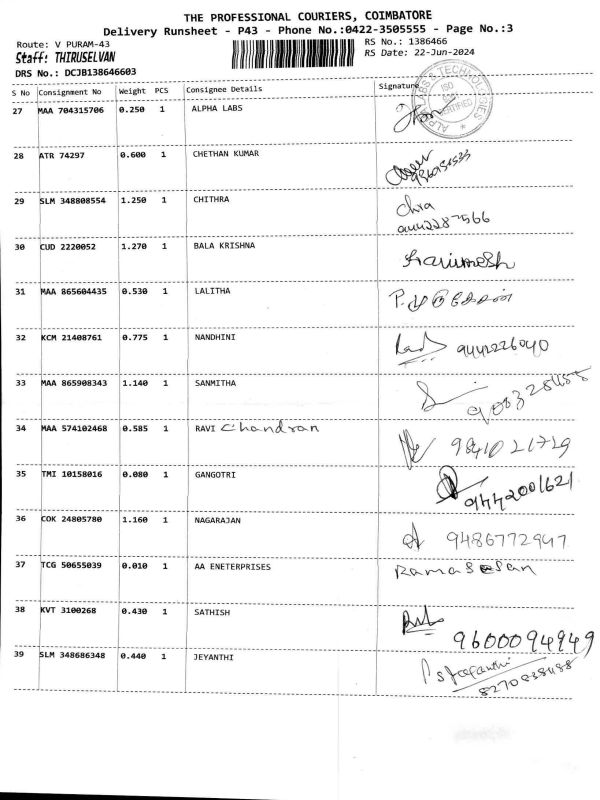 THE PROFESSIONAL COURIERS, COIMBATORE
Delivery Runsheet - P43 - Phone No.:0422-3505555 - Page No.:3
Route: V PURAM-43
RS No.: 1386466
Staff: THIRUSELVAN
RS Date: 22-Jun-2024
DRS No.: DCJB138646603
S No Consignment No Weight PCS Consignee Details Signature
ALPHA LABS & TECHNOLOGIES
ISO
CERTIFIED
27 MAA 704315706 0.250 1 ALPHA LABS
28 ATR 74297 0.600 1 CHETHAN KUMAR
29 SLM 348808554 1.250 1 CHITHRA
30 CUD 2220052 1.270 1 BALA KRISHNA
31 MAA 865604435 0.530 1 LALITHA
32 KCM 21408761 0.775 1 NANDHINI 9442226040
33 MAA 865908343 1.140 1 SANMITHA
34 MAA 574102468 0.585 1 RAVI Chandran 9841021729
35 TMI 10158016 0.080 1 GANGOTRI 9442001621
36 COK 24805780 1.160 1 NAGARAJAN 9486772947
37 TCG 50655039 0.010 1 AA ENETERPRISES
38 KVT 3100268 0.430 1 SATHISH
9600094949
39 SLM 348686348 0.440 1 JEYANTHI
8270838488